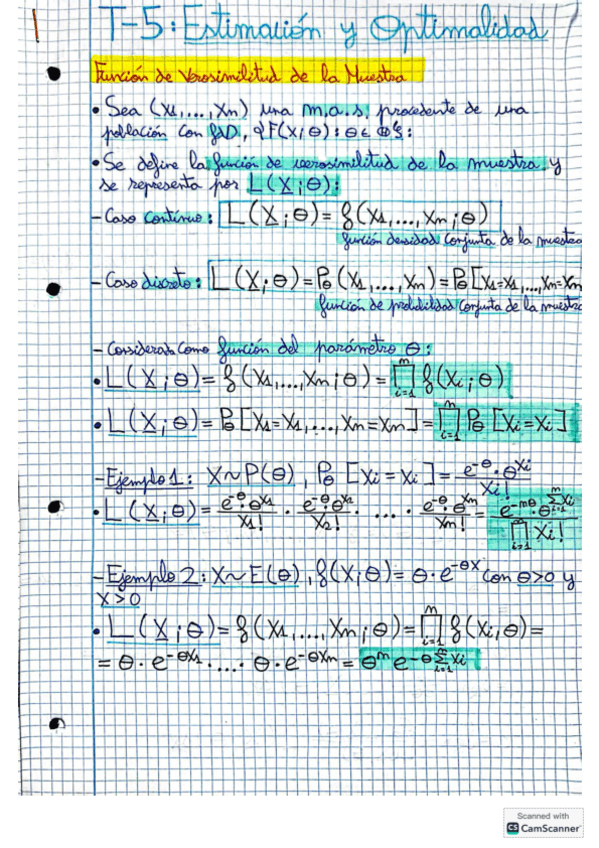 T-5: Estimación y Optimalidad
Función de Verosimilitud de la Muestra
• Sea (X1,...,Xn) una m.a.s. procedente de una
población con f.D., {F(X;θ): θ∈ Θ}:
• Se define la función de verosimilitud de la muestra y
se representa por L(X;θ):
- Caso continuo: L(X;θ) = f(X1,...,Xn;θ)
función densidad conjunta de la muestra
- Caso discreto: L(X;θ) = Pθ(X1,...,Xn) = Pθ[X1=X1,...,Xn=Xn
función de probabilidad conjunta de la muestra
- Considerada como función del parámetro θ:
• L(X;θ) = f(X1,...,Xn;θ) = ∏ⁿᵢ₌₁ f(Xi;θ)
• L(X;θ) = Pθ[X1=X1,...,Xn=Xn] = ∏ⁿᵢ₌₁ Pθ[Xi=Xi]
- Ejemplo 1: X~P(θ), Pθ[Xi=Xi] = e^-θ·θ^Xi / Xi!
• L(X;θ) = e^-θ·θ^X1 / X1! · e^-θ·θ^X2 / X2! · ... · e^-θ·θ^Xn / Xn! = e^-nθ·θ^∑ⁿᵢ₌₁Xi / ∏ⁿᵢ₌₁ Xi!
- Ejemplo 2: X~E(θ), f(X;θ) = θ·e^-θX con θ>0 y
X>0
• L(X;θ) = f(X1,...,Xn;θ) = ∏ⁿᵢ₌₁ f(Xi,θ) =
= θ·e^-θX1 · ... · θ·e^-θXn = θⁿ e^-θ∑ⁿᵢ₌₁Xi
Scanned with
CS CamScanner